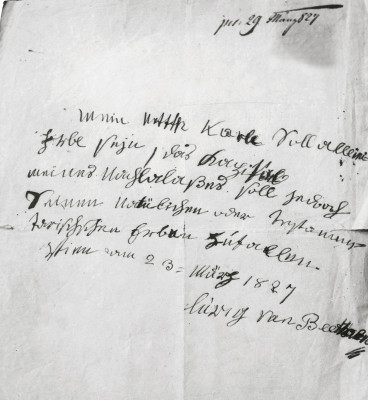 pr. 29 März 827
Mein Neffe Karl Soll alleini
Erbe seyn, das Kapital
meines Nachlalaßes soll jedoch
Seinen natülichen oder testamen-
tarischschen Erben zufallen.
Wien am 23= März 1827
luwig van Beethoven